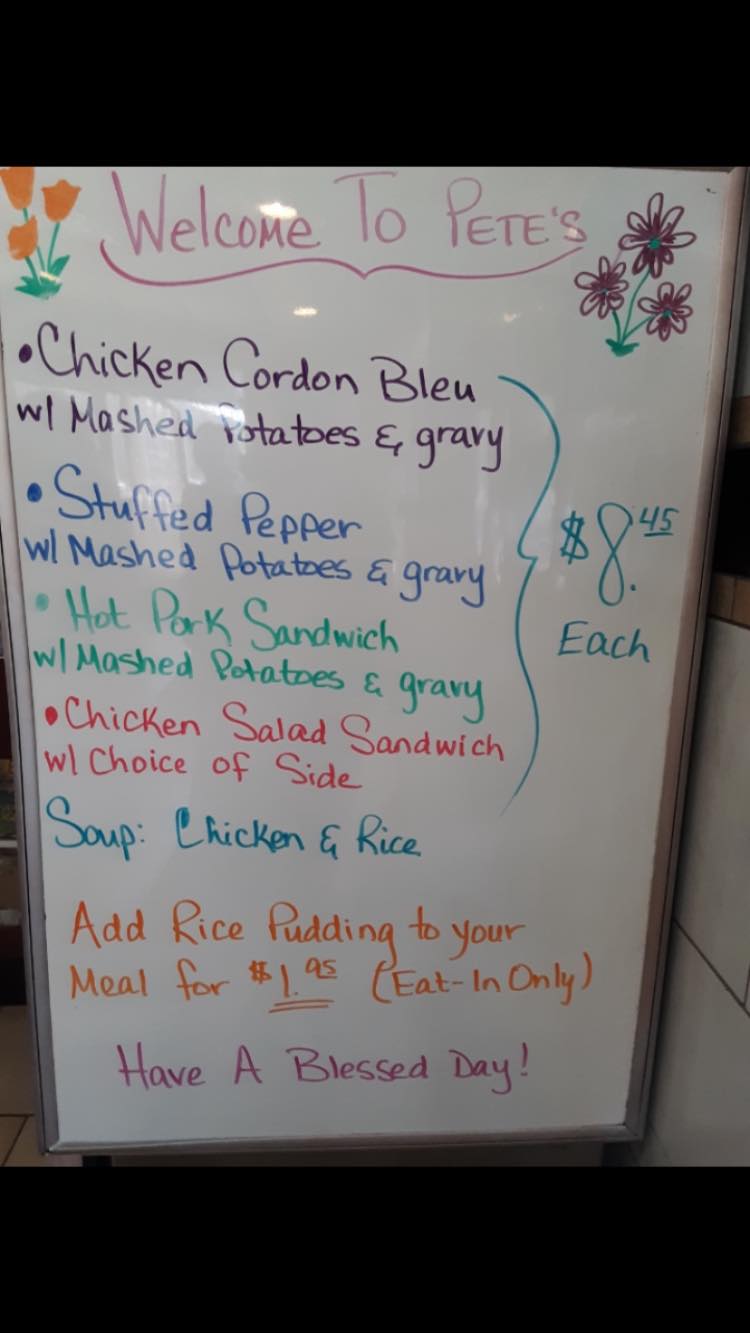 Welcome To PETE'S
• Chicken Cordon Bleu
w/ Mashed Potatoes & gravy
• Stuffed Pepper
w/ Mashed Potatoes & gravy
$8.45
Each
• Hot Pork Sandwich
w/ Mashed Potatoes & gravy
• Chicken Salad Sandwich
w/ Choice of Side
Soup: Chicken & Rice
Add Rice Pudding to your
Meal for $1.95 (Eat-In Only)
Have A Blessed Day!